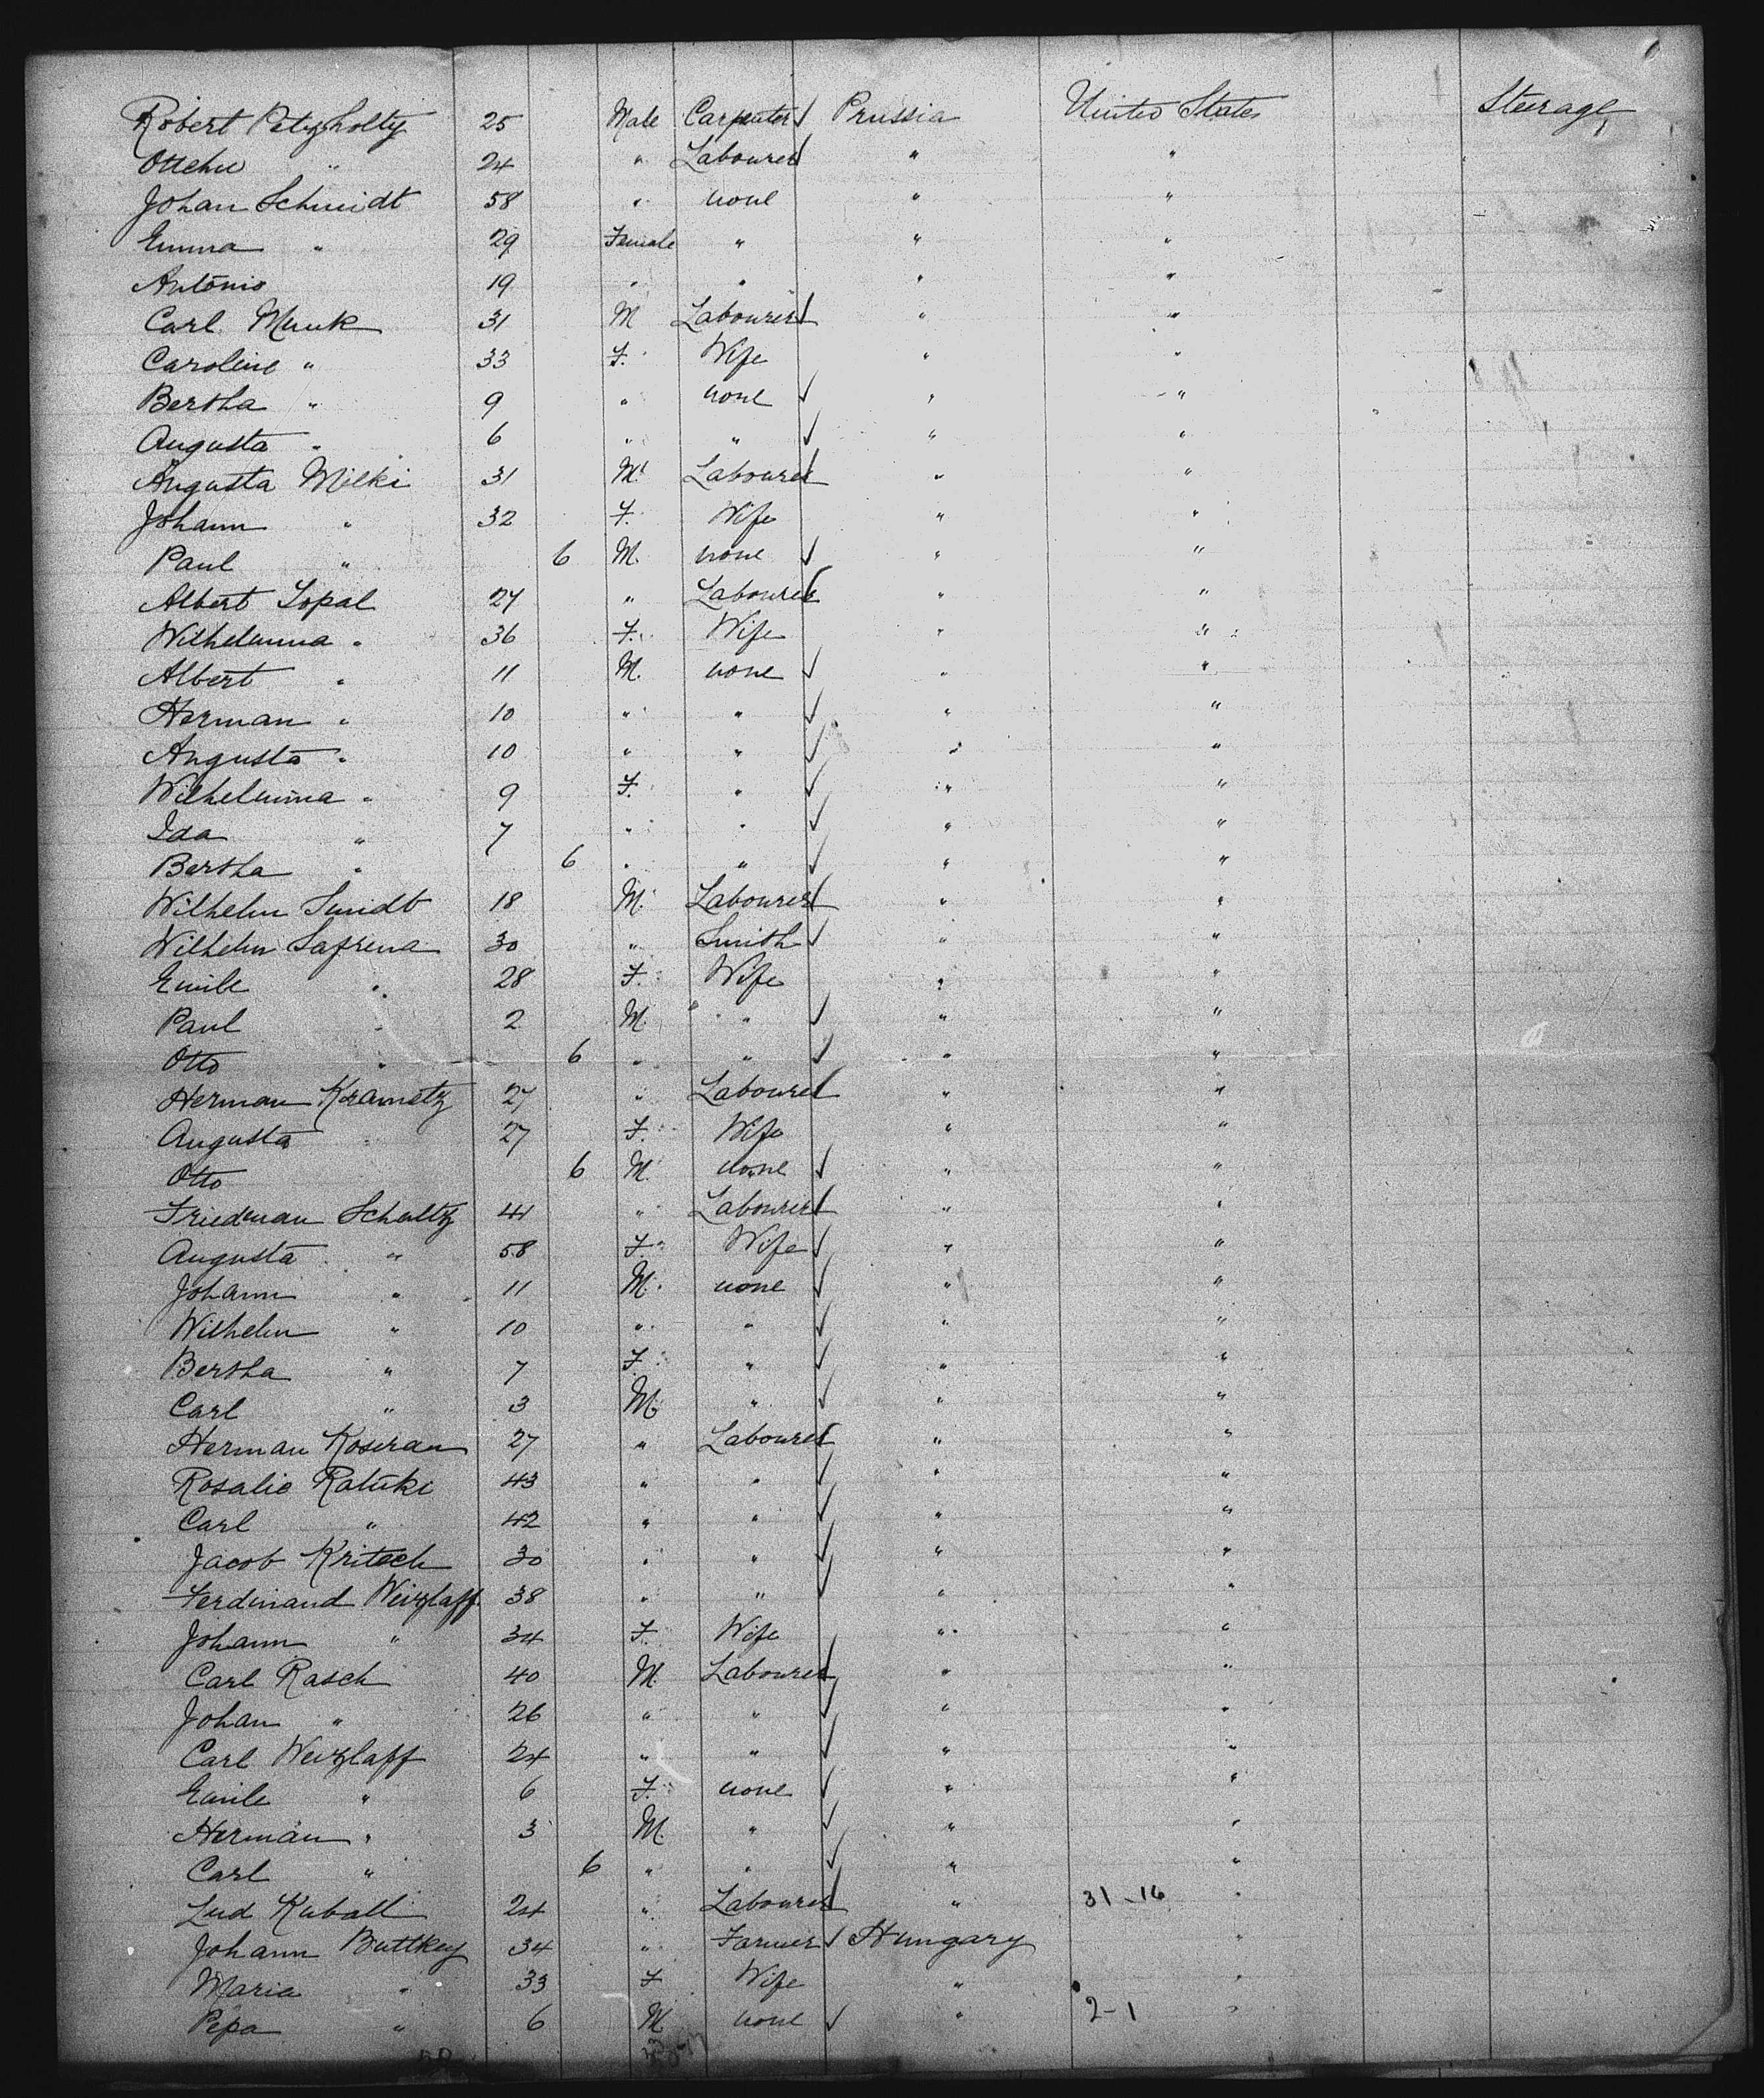 Robert Petzholtz 25 Male Carpenter Prussia United States Steerage
Ottchu " 24 " Labourer " "
Johan Schmidt 58 " none " "
Emma " 29 Female " " "
Antonio 19 " " " "
Carl Munk 31 M Labourer " "
Caroline " 33 F. Wife " "
Bertha " 9 " none " "
Augusta " 6 " " " "
Augusta Milki 31 M. Labourer " "
Johann " 32 F. Wife " "
Paul " 6 M. none " "
Albert Lopal 27 " Labourer " "
Wilhelmina " 36 F. Wife " "
Albert " 11 M. none " "
Herman " 10 " " " "
Augusta " 10 " " " "
Wilhelmina " 9 F. " " "
Ida " 7 " " " "
Bertha " 6 " " " "
Wilhelm Smidt 18 M. Labourer " "
Wilhelm Safrena 30 " Smith " "
Emile " 28 F. Wife " "
Paul " 2 M. " " "
Otto " 6 " " " "
Herman Krametz 27 " Labourer " "
Augusta " 27 F. Wife " "
Otto 6 M. none " "
Friedman Schultz 44 " Labourer " "
Augusta " 58 F. Wife " "
Johann " 11 M. none " "
Wilhelm " 10 " " " "
Bertha " 7 F. " " "
Carl " 3 M. " " "
Herman Koseran 27 " Labourer " "
Rosalie Ratuki 43 " " " "
Carl " 42 " " " "
Jacob Kritech 30 " " " "
Ferdinand Weizlaff 38 " " " "
Johann " 34 F. Wife " "
Carl Rasch 40 M. Labourer " "
Johan " 26 " " " "
Carl Weizlaff 24 " " " "
Emile " 6 F. none " "
Herman " 3 M. " " "
Carl " 6 " " " "
Lud Kuball 24 " Labourer " 31-16 "
Johann Buttkey 34 " Farmer Hungary "
Maria " 33 F Wife " "
Pepa " 6 M none " 2-1 "